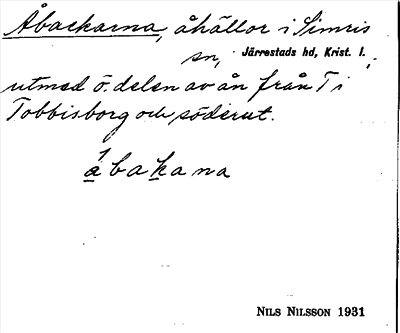 Åbackarna, åhällor i Simris
sn, Järrestads hd, Krist. l. ;
utmed ö. delen av ån från T i
Tobbisborg och söderut.
åbakana
NILS NILSSON 1931